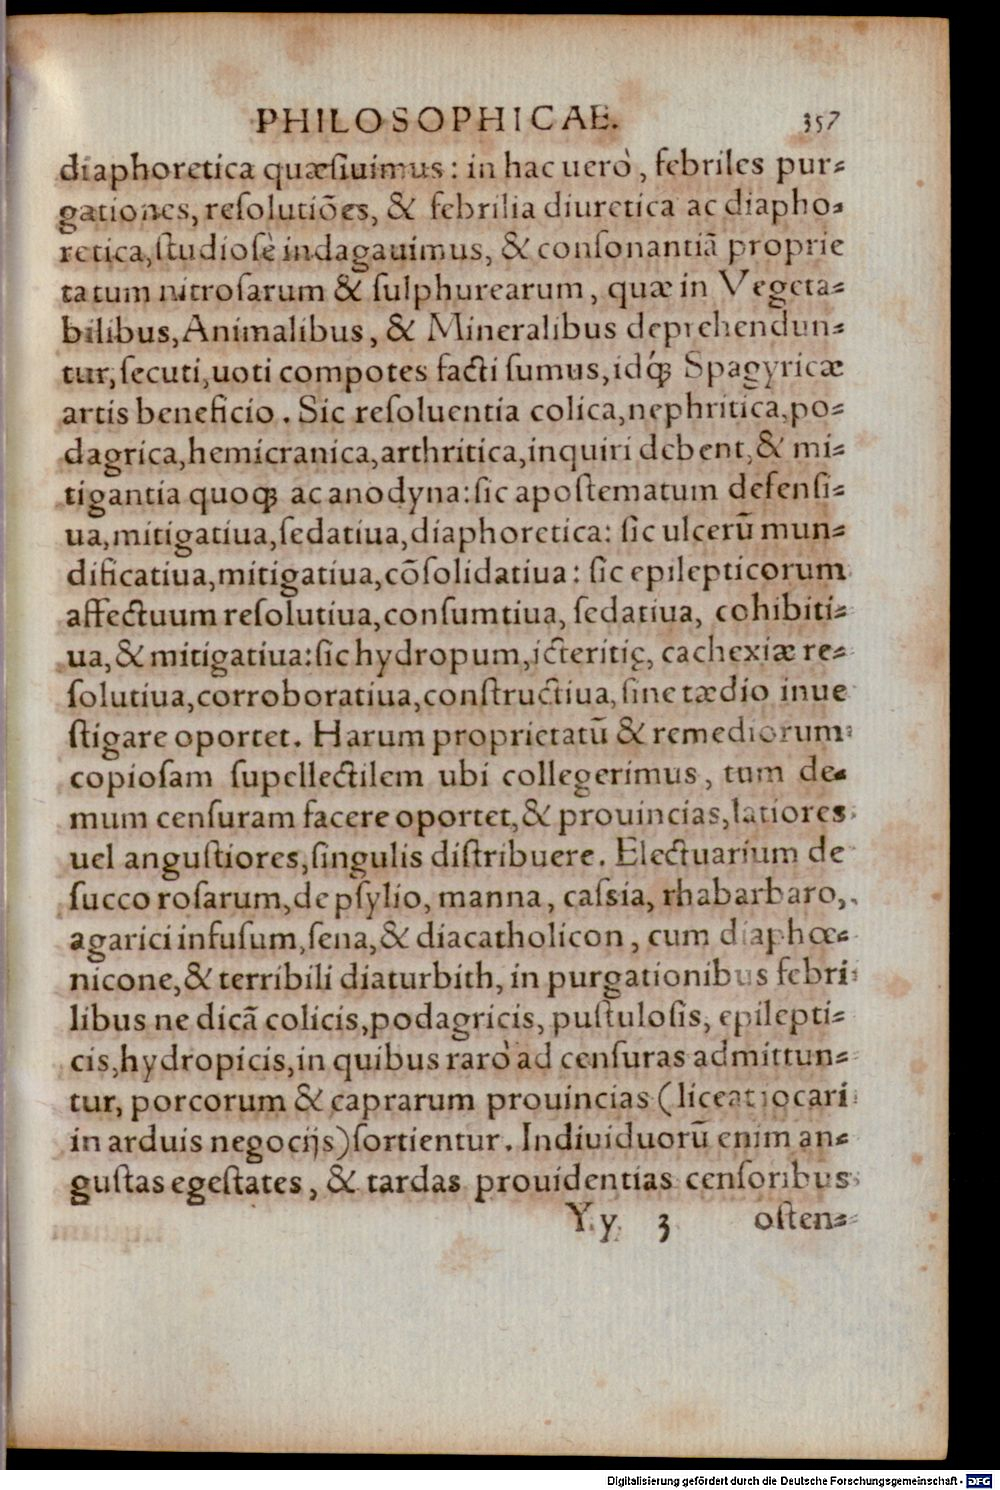 PHILOSOPHICAE. 357
diaphoretica quæsiuimus: in hac uerò, febriles pur-
gationes, resolutiões, & febrilia diuretica ac diapho-
retica, studiosè indagauimus, & consonantiã proprie
tatum nitrosarum & sulphurearum, quæ in Vegeta-
bilibus, Animalibus, & Mineralibus deprehendun-
tur, secuti, uoti compotes facti sumus, idq́ꝫ Spagyricæ
artis beneficio. Sic resoluentia colica, nephritica, po-
dagrica, hemicranica, arthritica, inquiri debent, & mi-
tigantia quoqꝫ ac anodyna: sic apostematum defensi-
ua, mitigatiua, sedatiua, diaphoretica: sic ulcerũ mun-
dificatiua, mitigatiua, cõsolidatiua: sic epilepticorum
affectuum resolutiua, consumtiua, sedatiua, cohibiti-
ua, & mitigatiua: sic hydropum, icteritię, cachexiæ re-
solutiua, corroboratiua, constructiua, sine tædio inue
stigare oportet. Harum proprietatũ & remediorum
copiosam supellectilem ubi collegerimus, tum de-
mum censuram facere oportet, & prouincias, latiores
uel angustiores, singulis distribuere. Electuarium de
succo rosarum, de psylio, manna, cassia, rhabarbaro,
agarici infusum, sena, & diacatholicon, cum diaphœ-
nicone, & terribili diaturbith, in purgationibus febri
libus ne dicã colicis, podagricis, pustulosis, epilepti-
cis, hydropicis, in quibus rarò ad censuras admittun-
tur, porcorum & caprarum prouincias (liceat iocari
in arduis negocijs) sortientur. Indiuiduorũ enim an-
gustas egestates, & tardas prouidentias censoribus
Y.y. 3 osten-
Digitalisierung gefördert durch die Deutsche Forschungsgemeinschaft - DFG